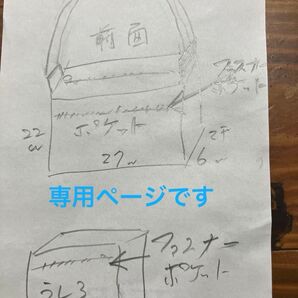 前面
ファスナー
ポケット
ポケット
22
27
マチ
6
専用ページです
ファスナー
ポケット
うしろ